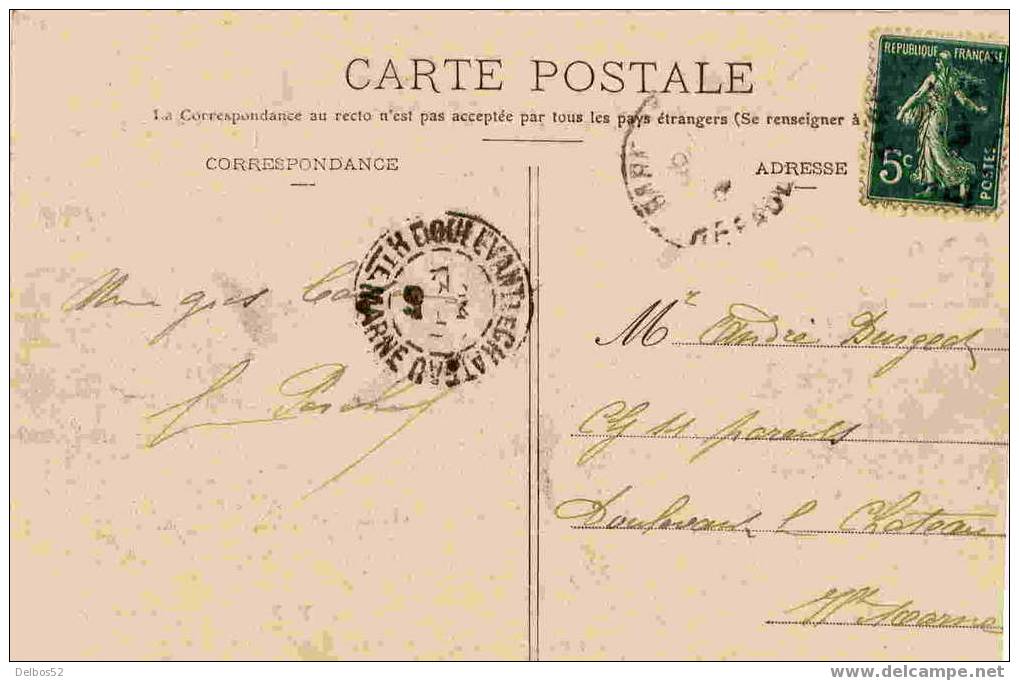 CARTE POSTALE
La Correspondance au recto n'est pas acceptée par tous les pays étrangers (Se renseigner à
CORRESPONDANCE
ADRESSE
REPUBLIQUE FRANÇAISE
5c
POSTES
DOULEVANT-LE-CHATEAU
HTE MARNE
Une gros
Mr André
parents
Doulevant le Chateau
Hte Marne
Delbos52
www.delcampe.net